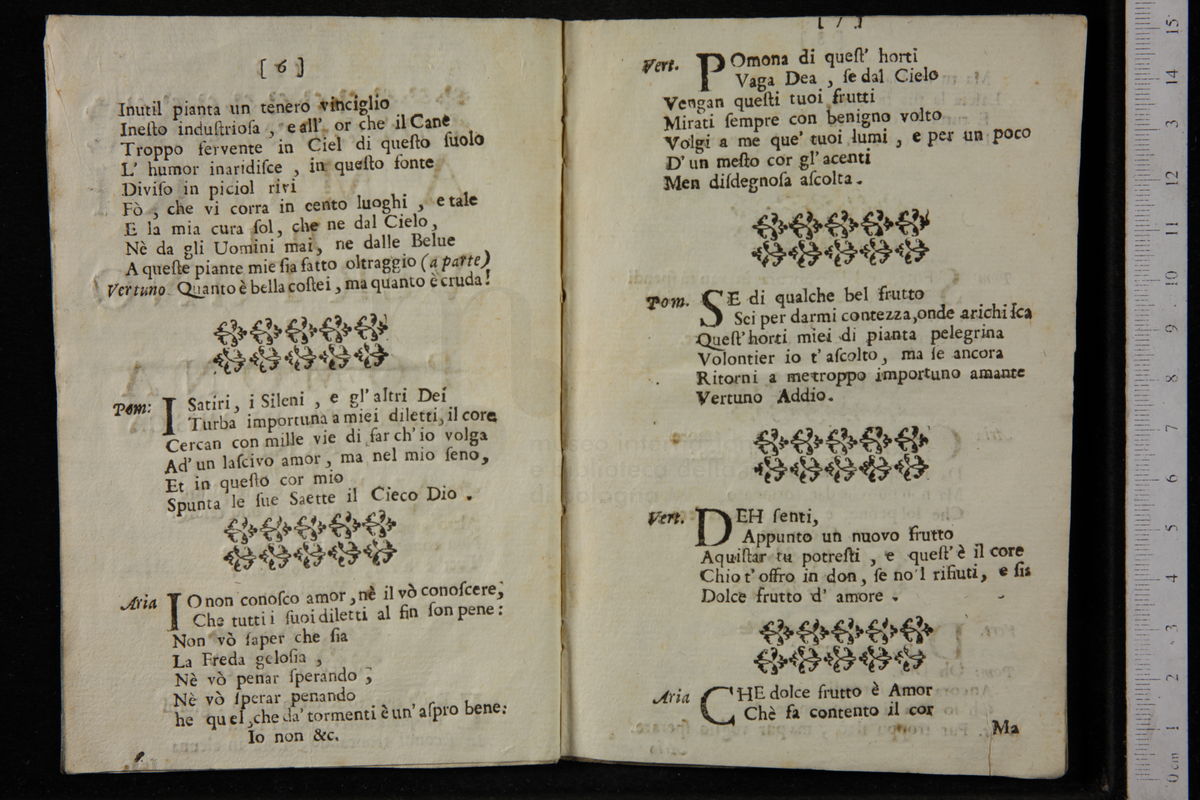 [ 6 ]
Inutil pianta un tenero vinciglio
Inesto industriosa , e all' or che il Cane
Troppo fervente in Ciel di questo suolo
L' humor inaridisce , in questo fonte
Diviso in piciol rivi
Fò , che vi corra in cento luoghi , e tale
E la mia cura sol, che ne dal Cielo,
Nè da gli Uomini mai, ne dalle Belue
A queste piante mie sia fatto oltraggio (a parte)
Vertuno. Quanto è bella costei, ma quanto è cruda!
Pom: I Satiri, i Sileni , e gl' altri Dei
Turba importuna a miei diletti, il core
Cercan con mille vie di far ch' io volga
Ad' un lascivo amor, ma nel mio seno,
Et in questo cor mio
Spunta le sue Saette il Cieco Dio .
Aria IO non conosco amor, nè il vò conoscere;
Che tutti i suoi diletti al fin son pene:
Non vò saper che sia
La Freda gelosia ,
Nè vò penar sperando ;
Nè vò sperar penando
he quel, che da' tormenti è un' aspro bene:
Io non &c.
[ 7 ]
Vert. POmona di quest' horti
Vaga Dea , se dal Cielo
Vengan questi tuoi frutti
Mirati sempre con benigno volto
Volgi a me que' tuoi lumi , e per un poco
D' un mesto cor gl' acenti
Men disdegnosa ascolta.
Pom. SE di qualche bel frutto
Sei per darmi contezza, onde arichisca
Quest' horti miei di pianta pelegrina
Volontier io t' ascolto, ma se ancora
Ritorni a me troppo importuno amante
Vertuno Addio.
Vert. DEH senti,
Appunto un nuovo frutto
Aquistar tu potresti , e quest' è il core
Chio t' offro in don, se no'l rifiuti, e sis
Dolce frutto d' amore .
Aria CHE dolce frutto è Amor
Chè fa contento il cor
Ma